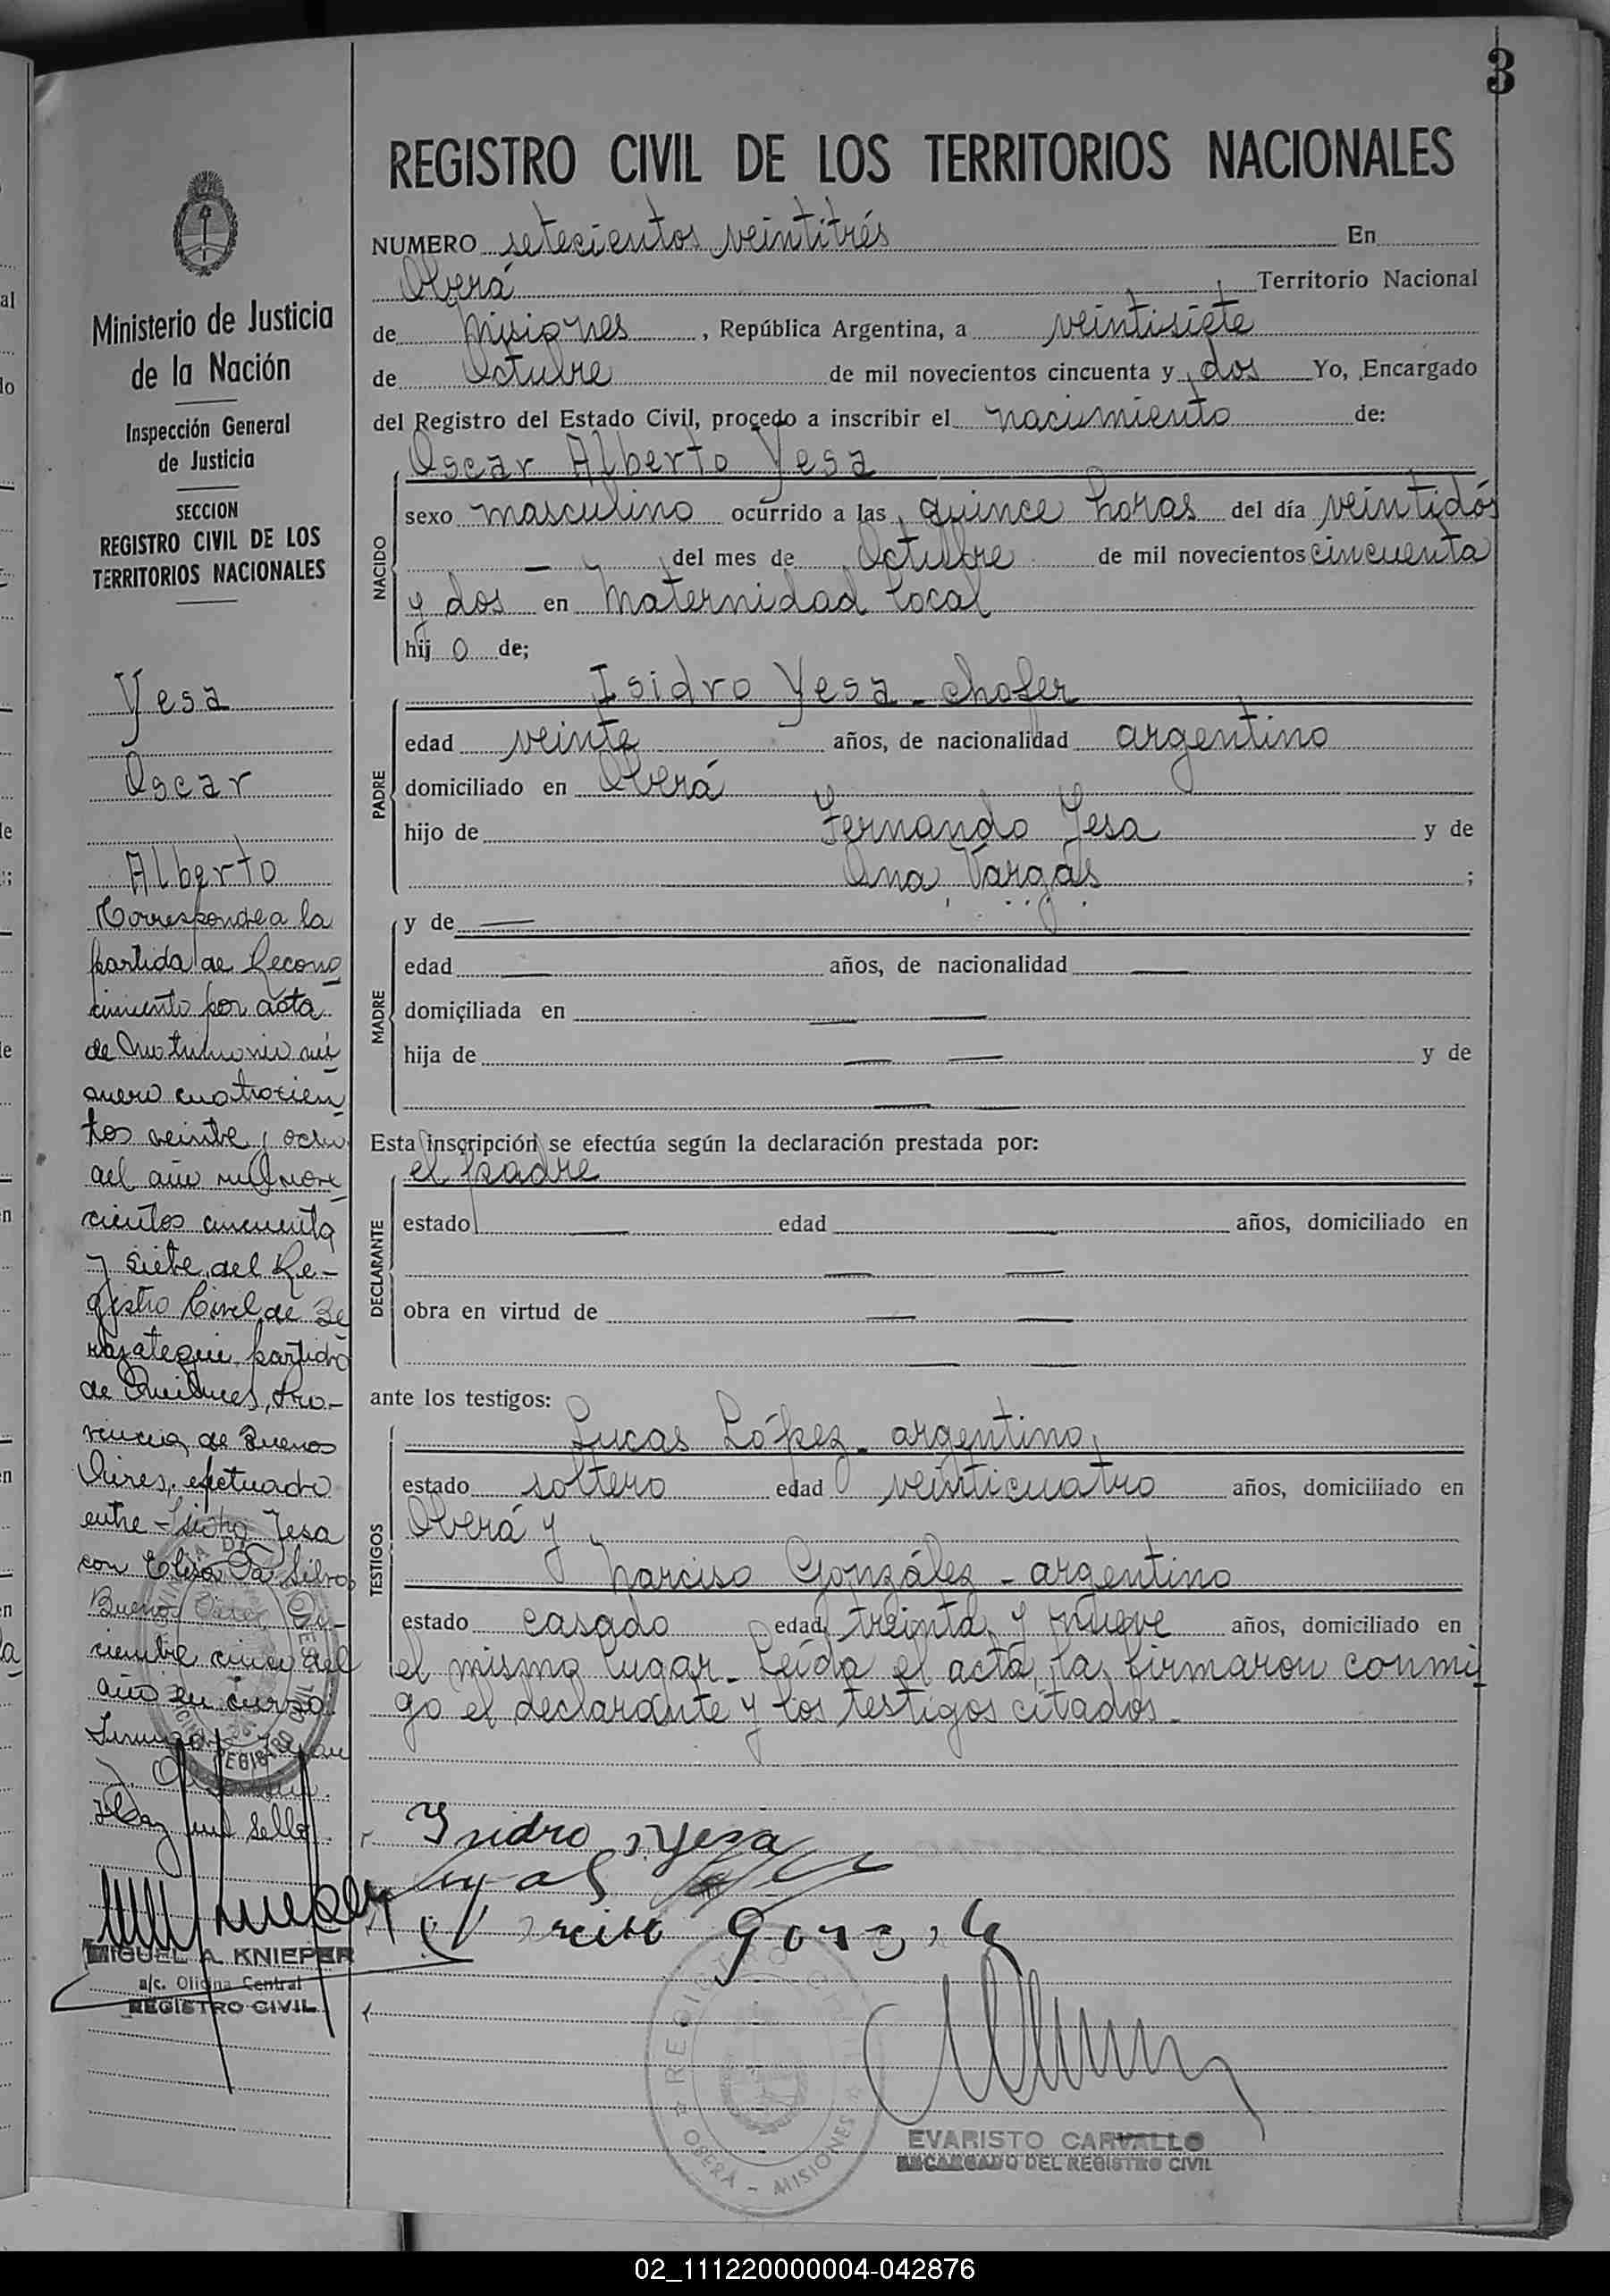 3
REGISTRO CIVIL DE LOS TERRITORIOS NACIONALES
NUMERO setecientos veintitrés En
Oberá Territorio Nacional
de Misiones, República Argentina, a veintisiete
de Octubre de mil novecientos cincuenta y dos Yo, Encargado
del Registro del Estado Civil, procedo a inscribir el nacimiento de:
Oscar Alberto Yesa
NACIDO
sexo masculino ocurrido a las quince horas del día veintidós
— del mes de Octubre de mil novecientos cincuenta
y dos en Maternidad local
hij o de;
PADRE
Isidro Yesa - chofer
edad veinte años, de nacionalidad argentino
domiciliado en Oberá
hijo de Fernando Yesa y de
Ana Vargas ;
MADRE
y de —
edad — años, de nacionalidad —
domiciliada en — —
hija de — — y de
— —
Esta inscripción se efectúa según la declaración prestada por:
el padre
DECLARANTE
estado — edad — años, domiciliado en
— —
obra en virtud de — —
— —
ante los testigos:
TESTIGOS
Lucas López - argentino,
estado soltero edad veinticuatro años, domiciliado en
Oberá y
Narciso González - argentino
estado casado edad treinta y nueve años, domiciliado en
el mismo lugar - Leída el acta, la firmaron conmi
go el declarante y los testigos citados -
Isidro Yesa
REGISTRO CIVIL
OBERA - MISIONES
EVARISTO CARVALLO
ENCARGADO DEL REGISTRO CIVIL
Ministerio de Justicia
de la Nación
Inspección General
de Justicia
SECCION
REGISTRO CIVIL DE LOS
TERRITORIOS NACIONALES
Yesa
Oscar
Alberto
Corresponde a la
partida de Recono
cimiento por acta
de Matrimonio nú
mero cuatrocien
tos veinte y ocho
del año mil nove
cientos cincuenta
y siete, del Re-
gistro Civil de Be
razategui, partido
de Quilmes, Pro-
vincia de Buenos
Aires, efectuado
entre Isidro Yesa
con Elisa Da Silva
Buenos Aires, Di-
ciembre cinco del
año en curso.
Hay un sello.
MIGUEL A. KNIEPER
a/c. Oficina Central
REGISTRO CIVIL
02_111220000004-042876